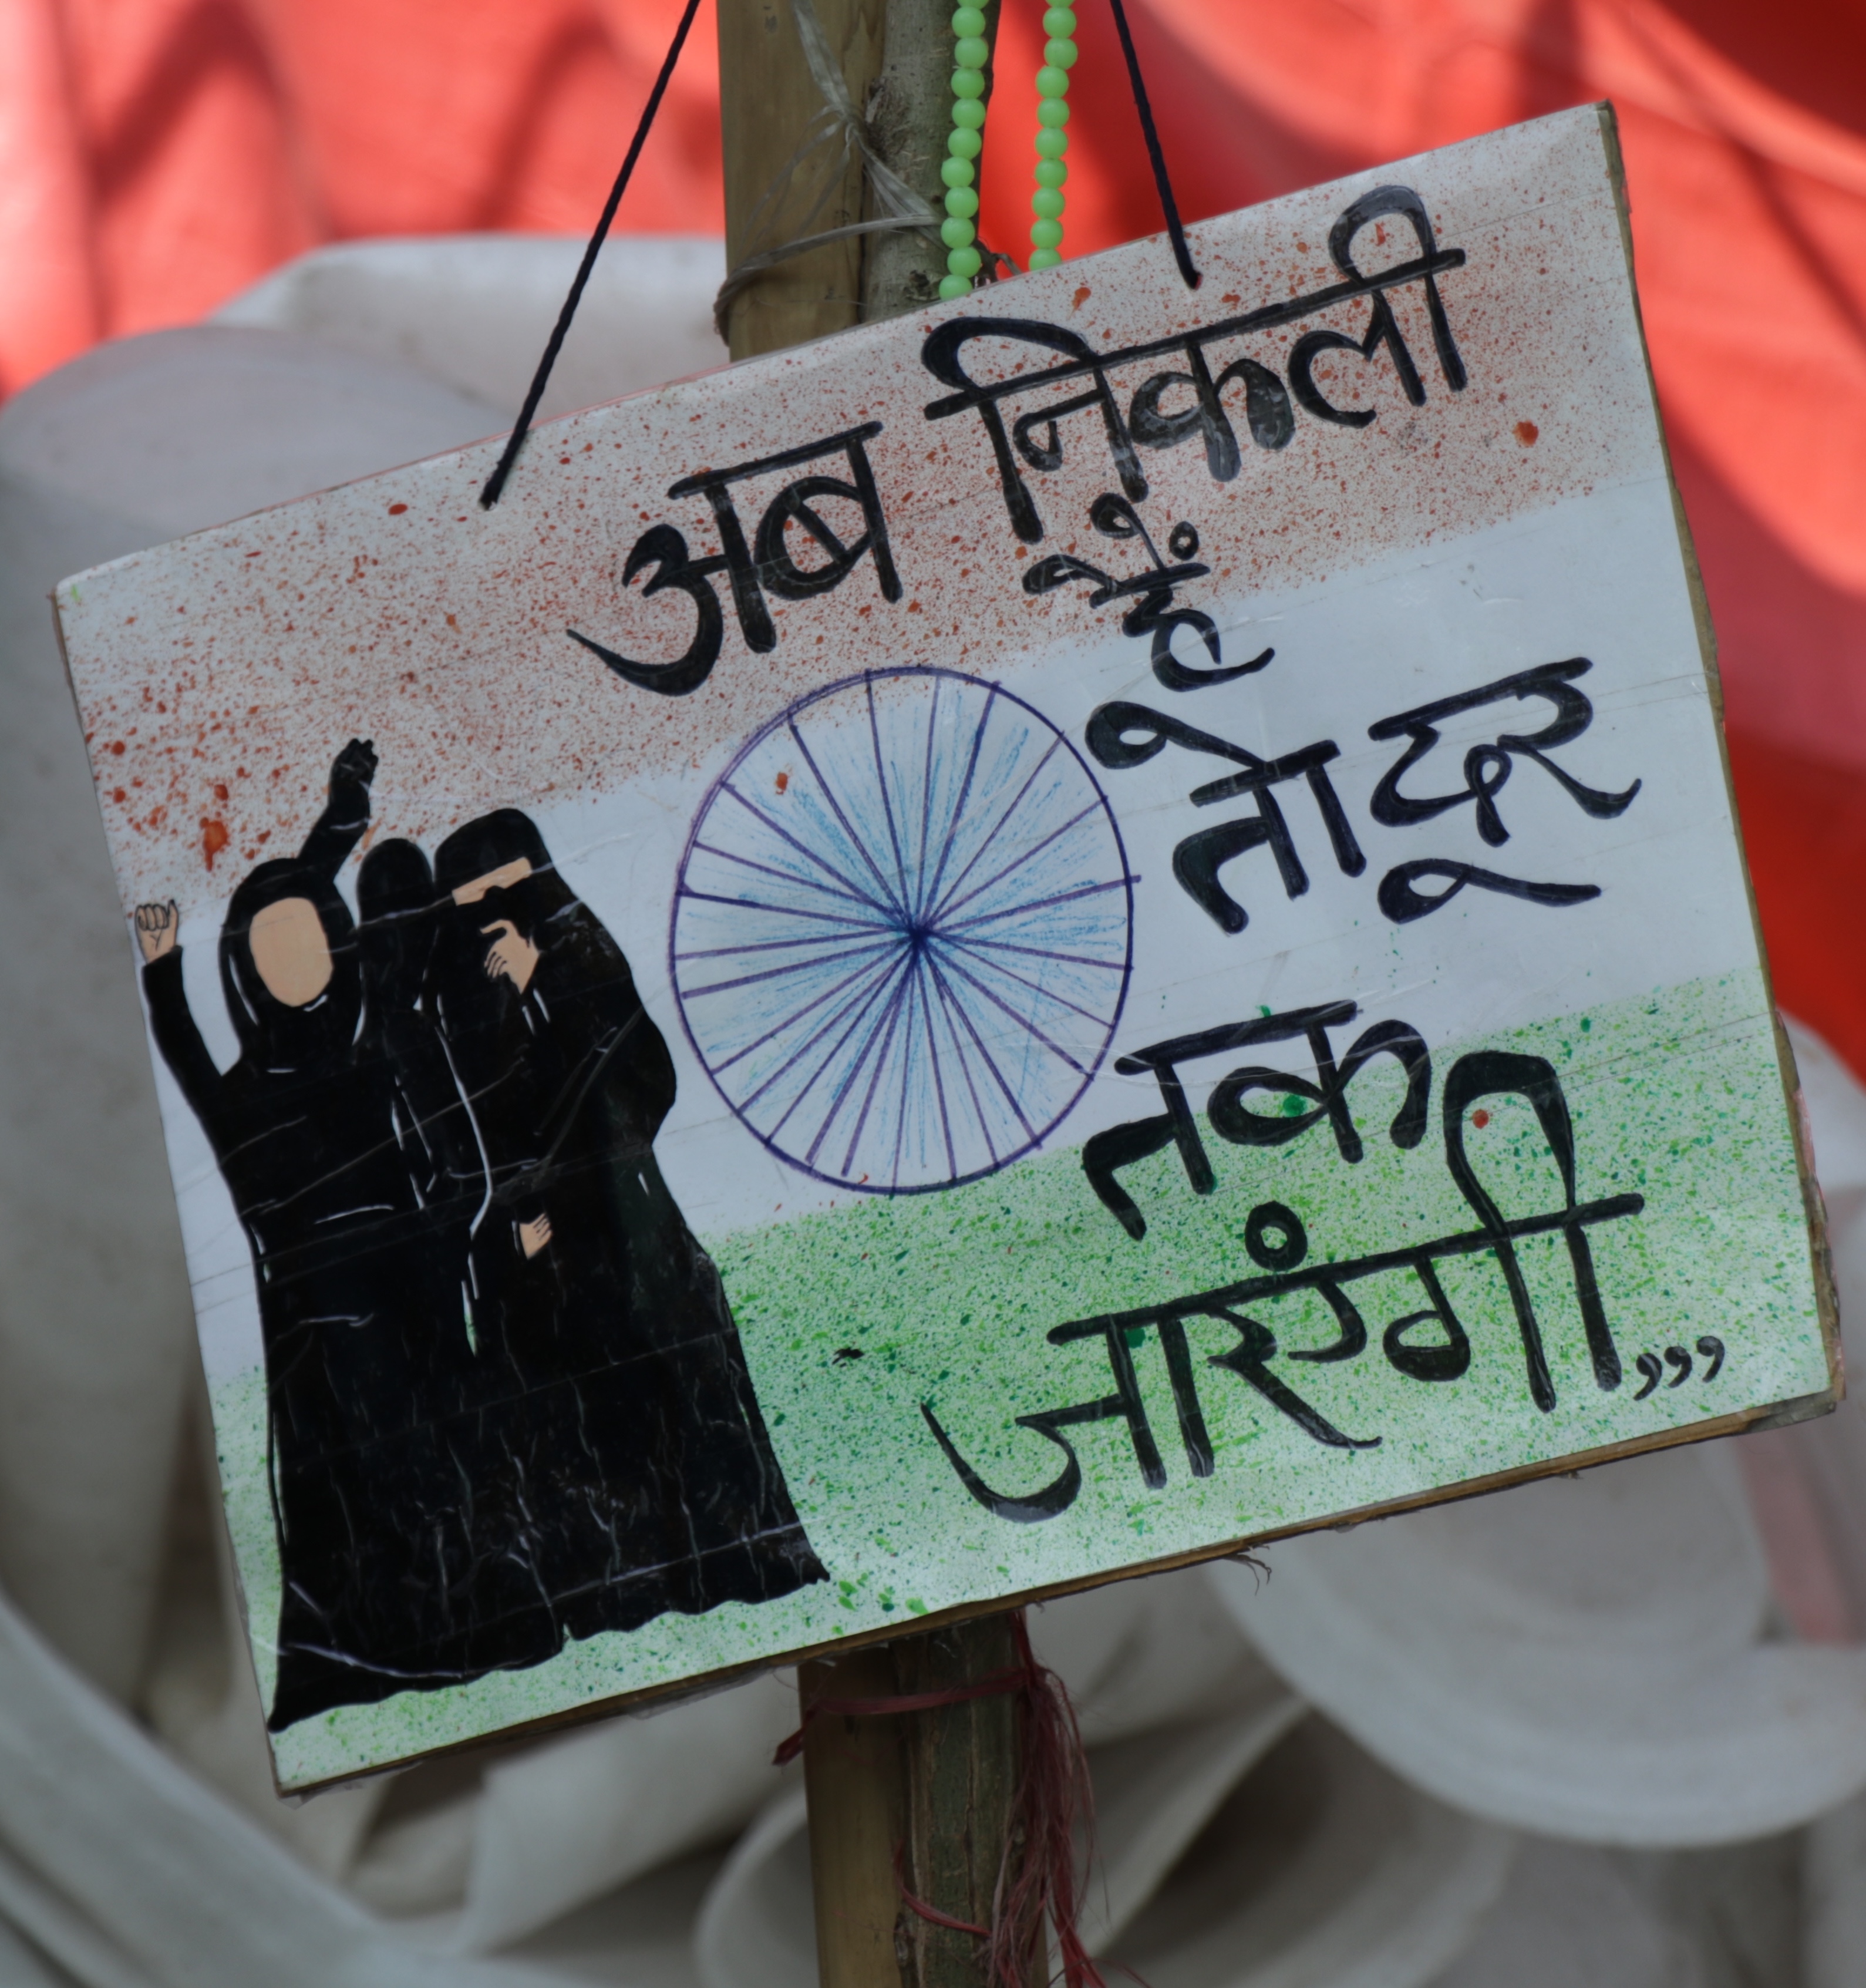 अब निकली
हैं
तो दूर
तक
जाएंगी,,,